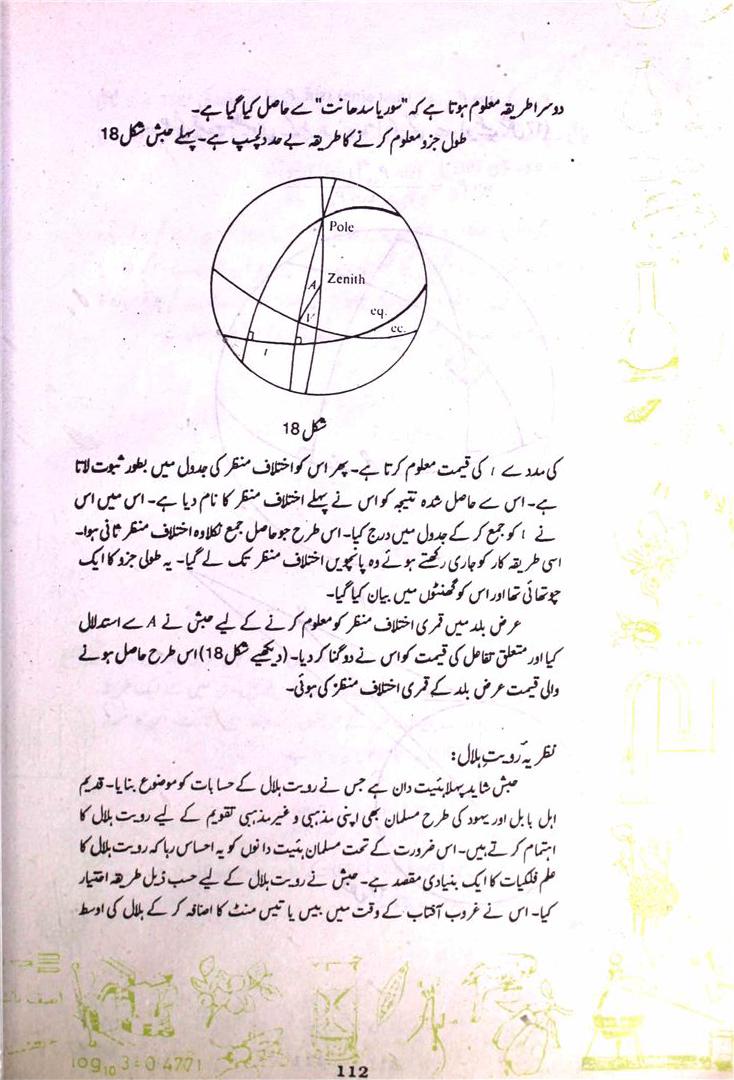 دوسرا طریقہ معلوم ہوتا ہے کہ "سوریا سدھانت" سے حاصل کیا گیا ہے۔
طول جزو معلوم کرنے کا طریقہ بے حد دلچسپ ہے۔ پہلے حبش شکل 18
Pole
Zenith
A
V
eq.
ec.
l
شکل 18
کی مدد سے l کی قیمت معلوم کرتا ہے۔ پھر اس کو اختلاف منظر کی جدول میں بطور ثبوت لاتا
ہے۔ اس سے حاصل شدہ نتیجہ کو اس نے پہلے اختلاف منظر کا نام دیا ہے۔ اس میں اس
نے l کو جمع کر کے جدول میں درج کیا۔ اس طرح جو حاصل جمع نکلا وہ اختلاف منظر ثانی ہوا۔
اسی طریقہ کار کو جاری رکھتے ہوئے وہ پانچویں اختلاف منظر تک لے گیا۔ یہ طولی جزو کا ایک
چوتھائی تھا اور اس کو گھنٹوں میں بیان کیا گیا۔
عرض بلد میں قمری اختلاف منظر کو معلوم کرنے کے لیے حبش نے A سے استدلال
کیا اور متعلق تفاعل کی قیمت کو اس نے دوگنا کر دیا۔ (دیکھیے شکل 18) اس طرح حاصل ہونے
والی قیمت عرض بلد کے قمری اختلاف منظر کی ہوئی۔
نظریہ رویت ہلال:
حبش شاید پہلا ہئیت دان ہے جس نے رویت ہلال کے حسابات کو موضوع بنایا۔ قدیم
اہل بابل اور یہود کی طرح مسلمان بھی اپنی مذہبی و غیر مذہبی تقویم کے لیے رویت ہلال کا
اہتمام کرتے ہیں۔ اس ضرورت کے تحت مسلمان ہئیت دانوں کو یہ احساس رہا کہ رویت ہلال کا
علم فلکیات کا ایک بنیادی مقصد ہے۔ حبش نے رویت ہلال کے لیے حسب ذیل طریقہ اختیار
کیا۔ اس نے غروب آفتاب کے وقت میں بیس یا تیس منٹ کا اضافہ کر کے ہلال کی اوسط
log₁₀ 3=0·4771
112